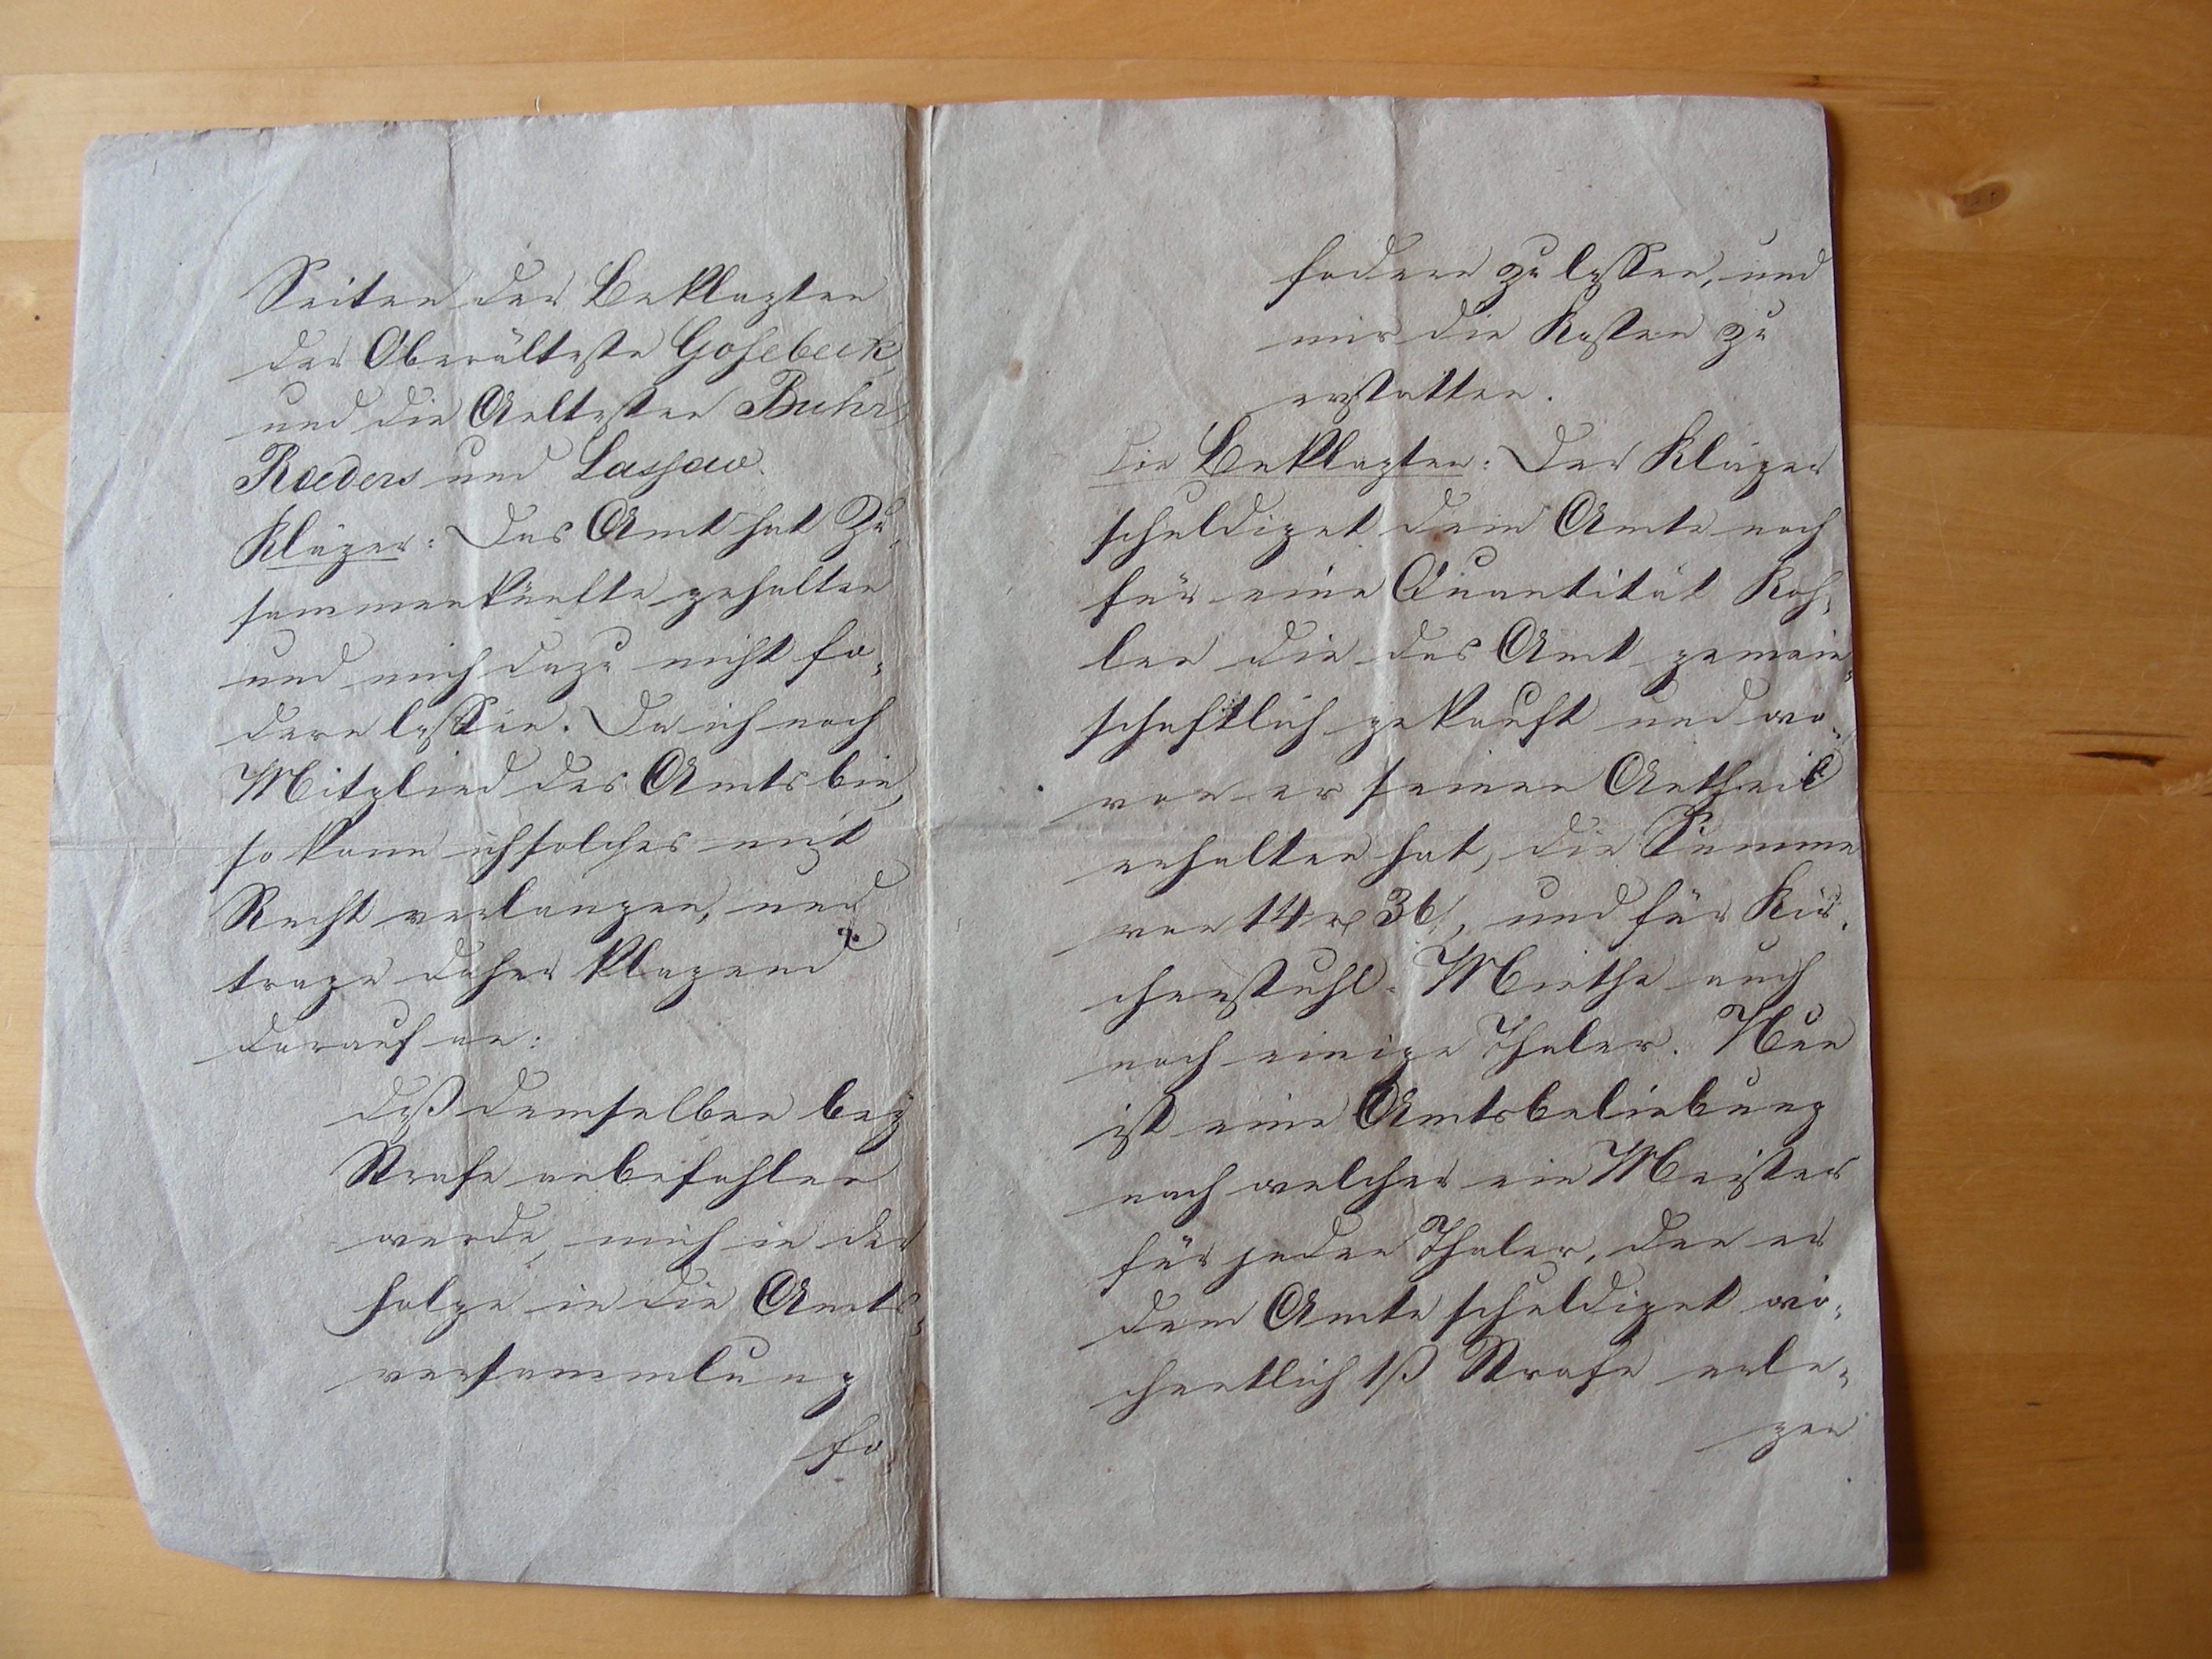 Seiten der Beklagten
der Oberälteste Gosebeck,
und die Aeltesten Buhr,
Roeders und Lassaw.
Kläger: Das Amt hat Zu-
sammenkünfte gehalten
und mich dazu nicht fo-
dern lassen. Da ich noch
Mitglied des Amts bin,
so kann ich solches mit
Recht verlangen, und
trage daher klagend
darauf an:
daß demselben bey
Strafe anbefohlen
werde, mich in der
Folge in die Amts-
versammlung
fo-
fodern zu lassen, und
mir die Kosten zu
erstatten.
Die Beklagten: Der Kläger
schuldiget dem Amte noch
für eine Quantität Koh-
len die das Amt gemein-
schaftlich gekauft und wo-
von er seinen Antheil
erhalten hat, die Summe
von 14 rβ 36 β, und für Kir-
chenstuhl-Miethe auch
noch einige Thaler. Nun
ist eine Amtsbeliebung
nach welcher ein Meister
für jeden Thaler, den er
dem Amte schuldiget wö-
chentlich 1 β Strafe erle-
gen